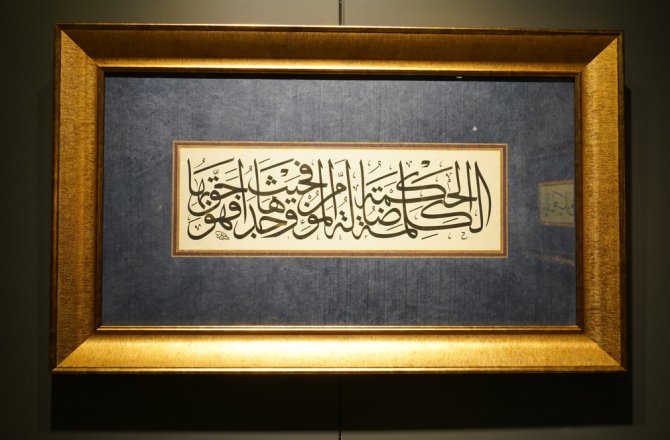 الكلمة الحكمة ضالة المؤمن فحيث وجدها فهو أحق بها